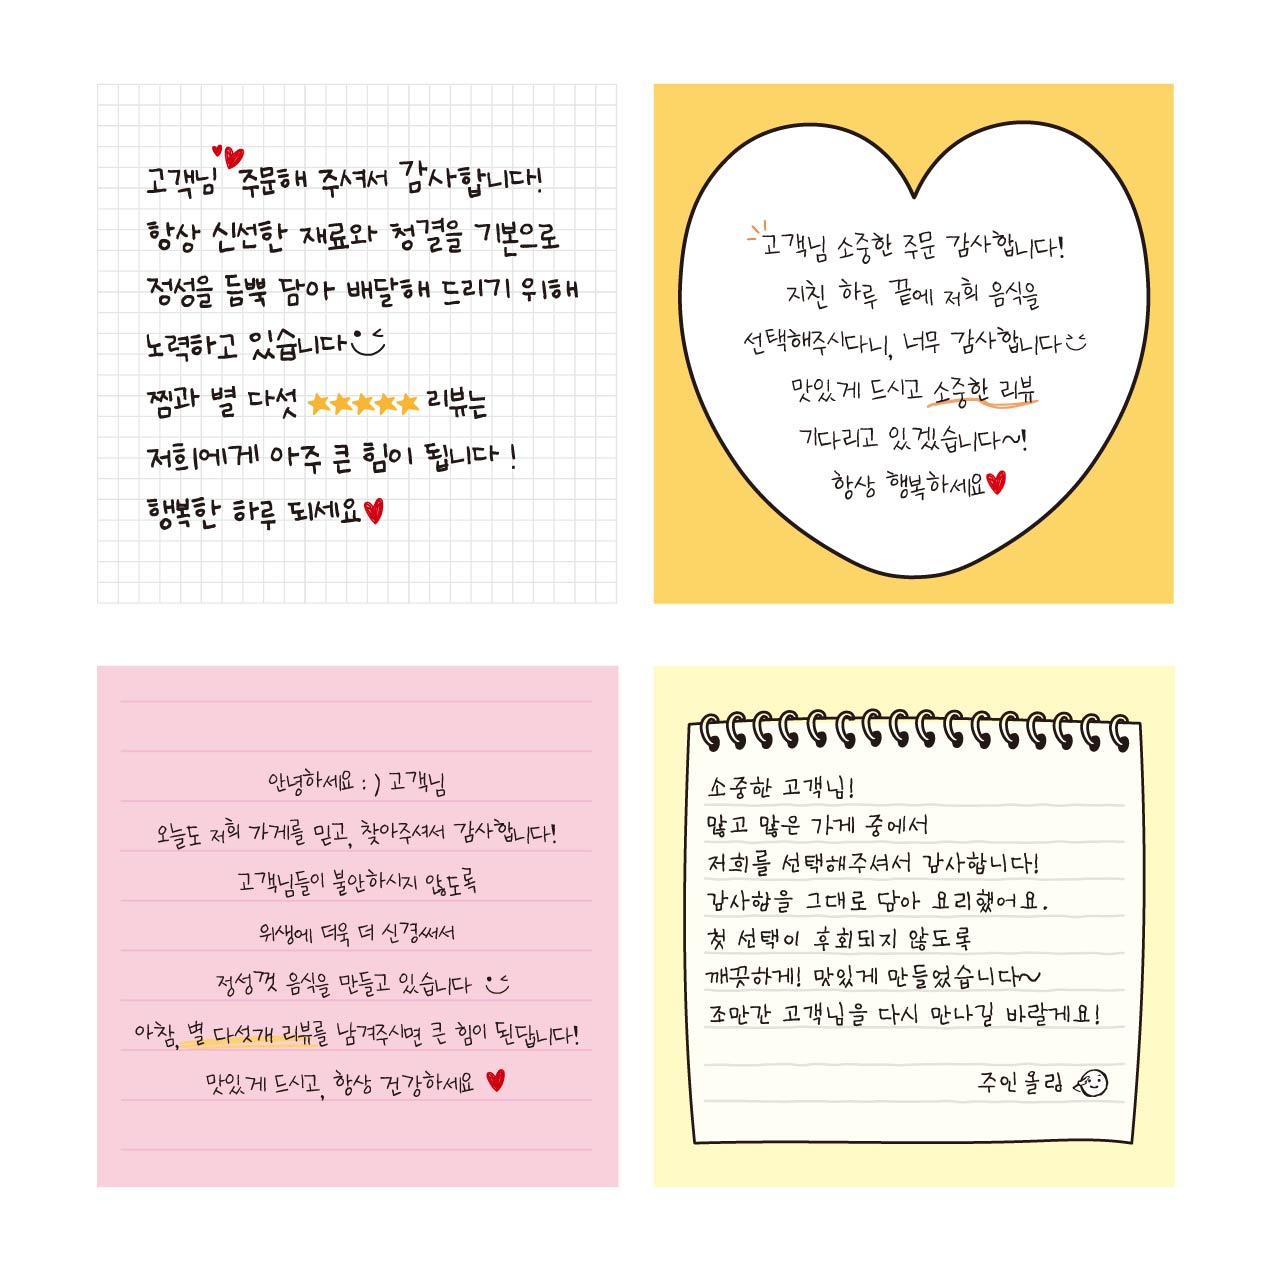 고객님 주문해 주셔서 감사합니다!
항상 신선한 재료와 청결을 기본으로
정성을 듬뿍 담아 배달해 드리기 위해
노력하고 있습니다
찜과 별 다섯 리뷰는
저희에게 아주 큰 힘이 됩니다 !
행복한 하루 되세요
고객님 소중한 주문 감사합니다!
지친 하루 끝에 저희 음식을
선택해주시다니, 너무 감사합니다
맛있게 드시고 소중한 리뷰
기다리고 있겠습니다~!
항상 행복하세요
안녕하세요 : ) 고객님
오늘도 저희 가게를 믿고, 찾아주셔서 감사합니다!
고객님들이 불안하시지 않도록
위생에 더욱 더 신경써서
정성껏 음식을 만들고 있습니다
아참, 별 다섯개 리뷰를 남겨주시면 큰 힘이 된답니다!
맛있게 드시고, 항상 건강하세요
소중한 고객님!
많고 많은 가게 중에서
저희를 선택해주셔서 감사합니다!
감사함을 그대로 담아 요리했어요.
첫 선택이 후회되지 않도록
깨끗하게! 맛있게 만들었습니다~
조만간 고객님을 다시 만나길 바랄게요!
주인올림